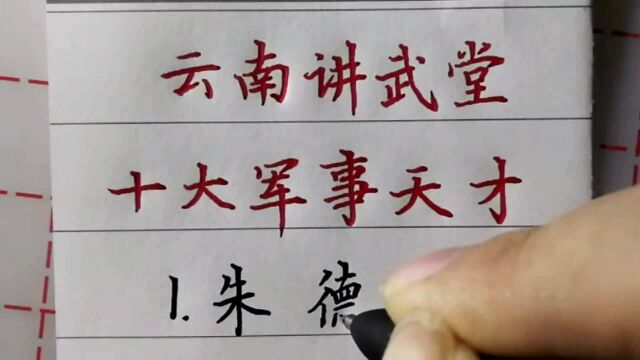 云南讲武堂
十大军事天才
1.朱德